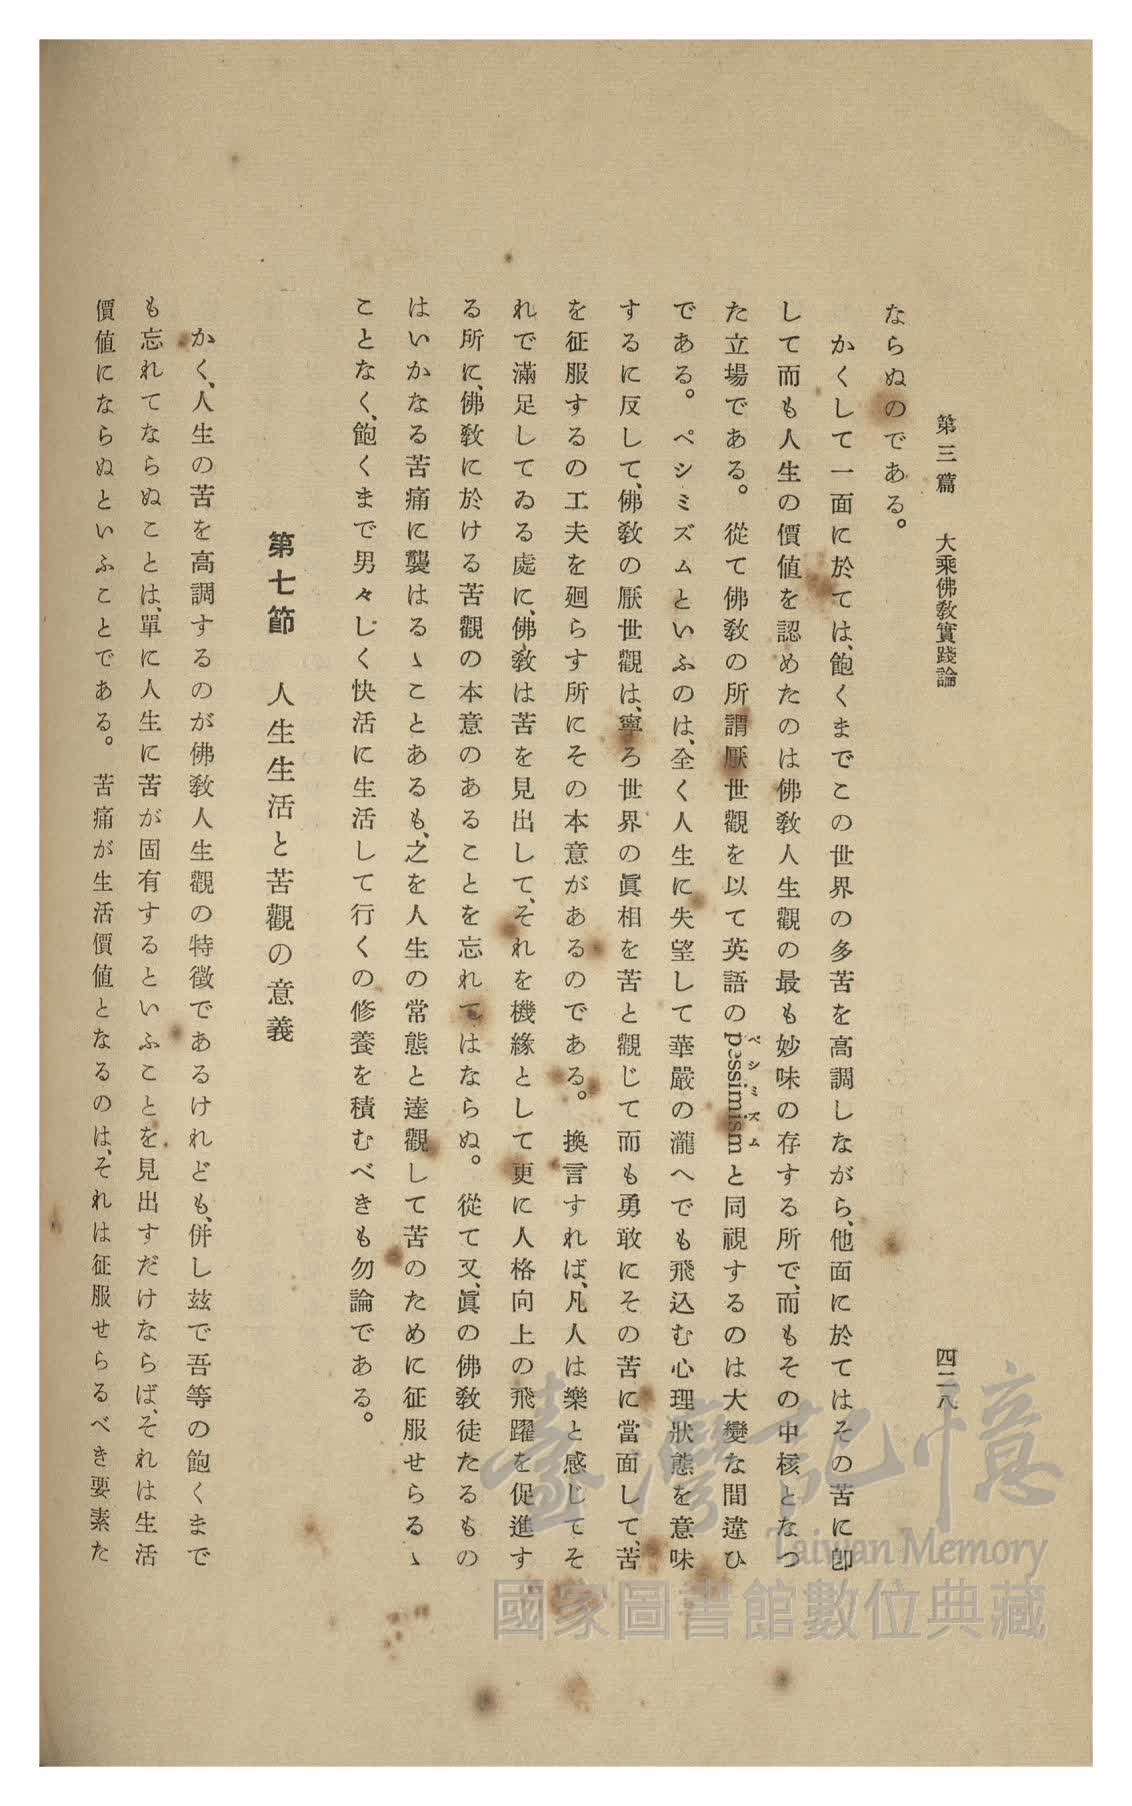 第三篇　大乘佛教實踐論
四二八
ならぬのである。
かくして一面に於ては、飽くまでこの世界の多苦を高調しながら、他面に於てはその苦に卽
して而も人生の價値を認めたのは佛教人生觀の最も妙味の存する所で、而もその中核となつ
た立場である。從て佛教の所謂厭世觀を以て英語のpessimismと同視するのは大變な間違ひ
ペシミズム
である。ペシミズムといふのは、全く人生に失望して華嚴の瀧へでも飛込む心理狀態を意味
するに反して、佛教の厭世觀は、寧ろ世界の眞相を苦と觀じて而も勇敢にその苦に當面して、苦
を征服するの工夫を廻らす所にその本意があるのである。換言すれば、凡人は樂と感じてそ
れで滿足してゐる處に、佛教は苦を見出して、それを機緣として更に人格向上の飛躍を促進す
る所に、佛教に於ける苦觀の本意のあることを忘れてはならぬ。從て又、眞の佛教徒たるもの
はいかなる苦痛に襲はるゝことあるも、之を人生の常態と達觀して苦のために征服せらるゝ
ことなく、飽くまで男々しく快活に生活して行くの修養を積むべきも勿論である。
第七節　人生生活と苦觀の意義
かく、人生の苦を高調するのが佛教人生觀の特徵であるけれども、併し玆で吾等の飽くまで
も忘れてならぬことは、單に人生に苦が固有するといふことを見出すだけならば、それは生活
價値にならぬといふことである。苦痛が生活價値となるのは、それは征服せらるべき要素た
臺灣記憶
Taiwan Memory
國家圖書館數位典藏